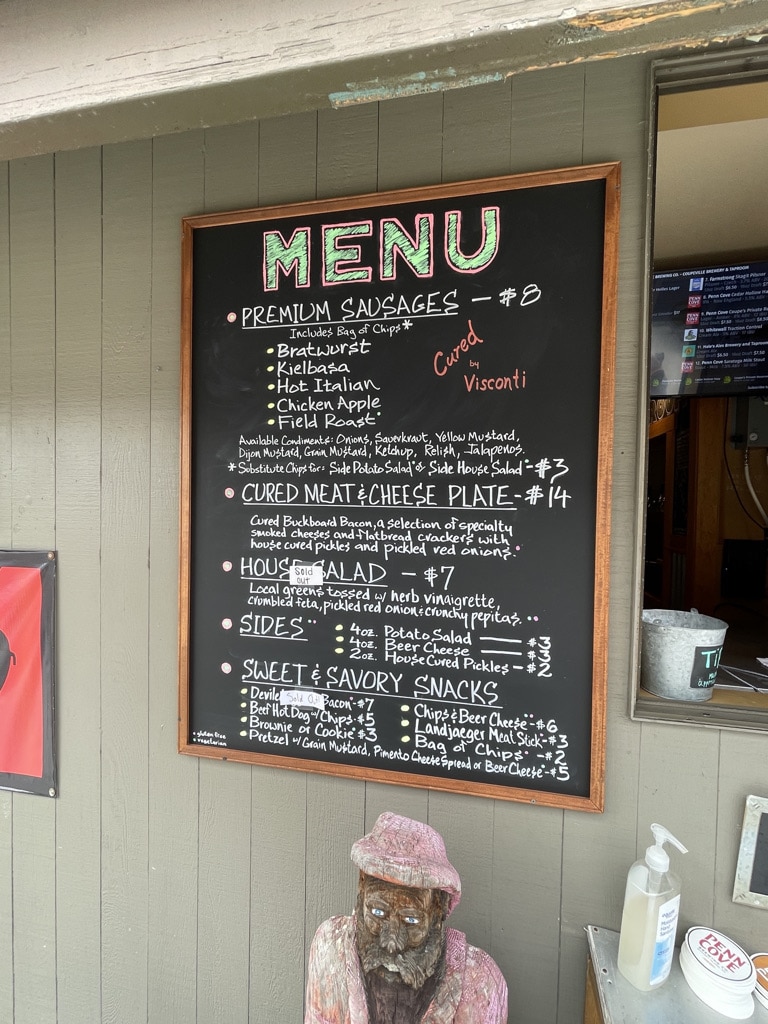 MENU
PREMIUM SAUSAGES - $8
Includes Bag of Chips*
Bratwurst
Kielbasa
Hot Italian
Chicken Apple
Field Roast
Cured
by
Visconti
Available Condiments: Onions, Sauerkraut, Yellow Mustard,
Dijon Mustard, Grain Mustard, Ketchup, Relish, Jalapenos.
*Substitute Chips for: Side Potato Salad or Side House Salad - $3
CURED MEAT & CHEESE PLATE - $14
Cured Buckboard Bacon, a selection of specialty
smoked cheeses and flatbread crackers with
house cured pickles and pickled red onions.
HOUSE SALAD - $7
Sold
out
Local greens tossed w/ herb vinaigrette,
crumbled feta, pickled red onion & crunchy pepitas.
SIDES
4oz. Potato Salad — $3
4oz. Beer Cheese — $3
2oz. House Cured Pickles - $2
SWEET & SAVORY SNACKS
Devile Sold Out Bacon - $7
Beef Hot Dog w/ Chips - $5
Brownie or Cookie - $3
Pretzel w/ Grain Mustard, Pimento Cheese Spread or Beer Cheese - $5
Chips & Beer Cheese - $6
Landjaeger Meat Stick - $3
Bag of Chips - $2
gluten free
vegetarian
BREWING CO. - COUPEVILLE BREWERY & TAPROOM
PENN
COVE